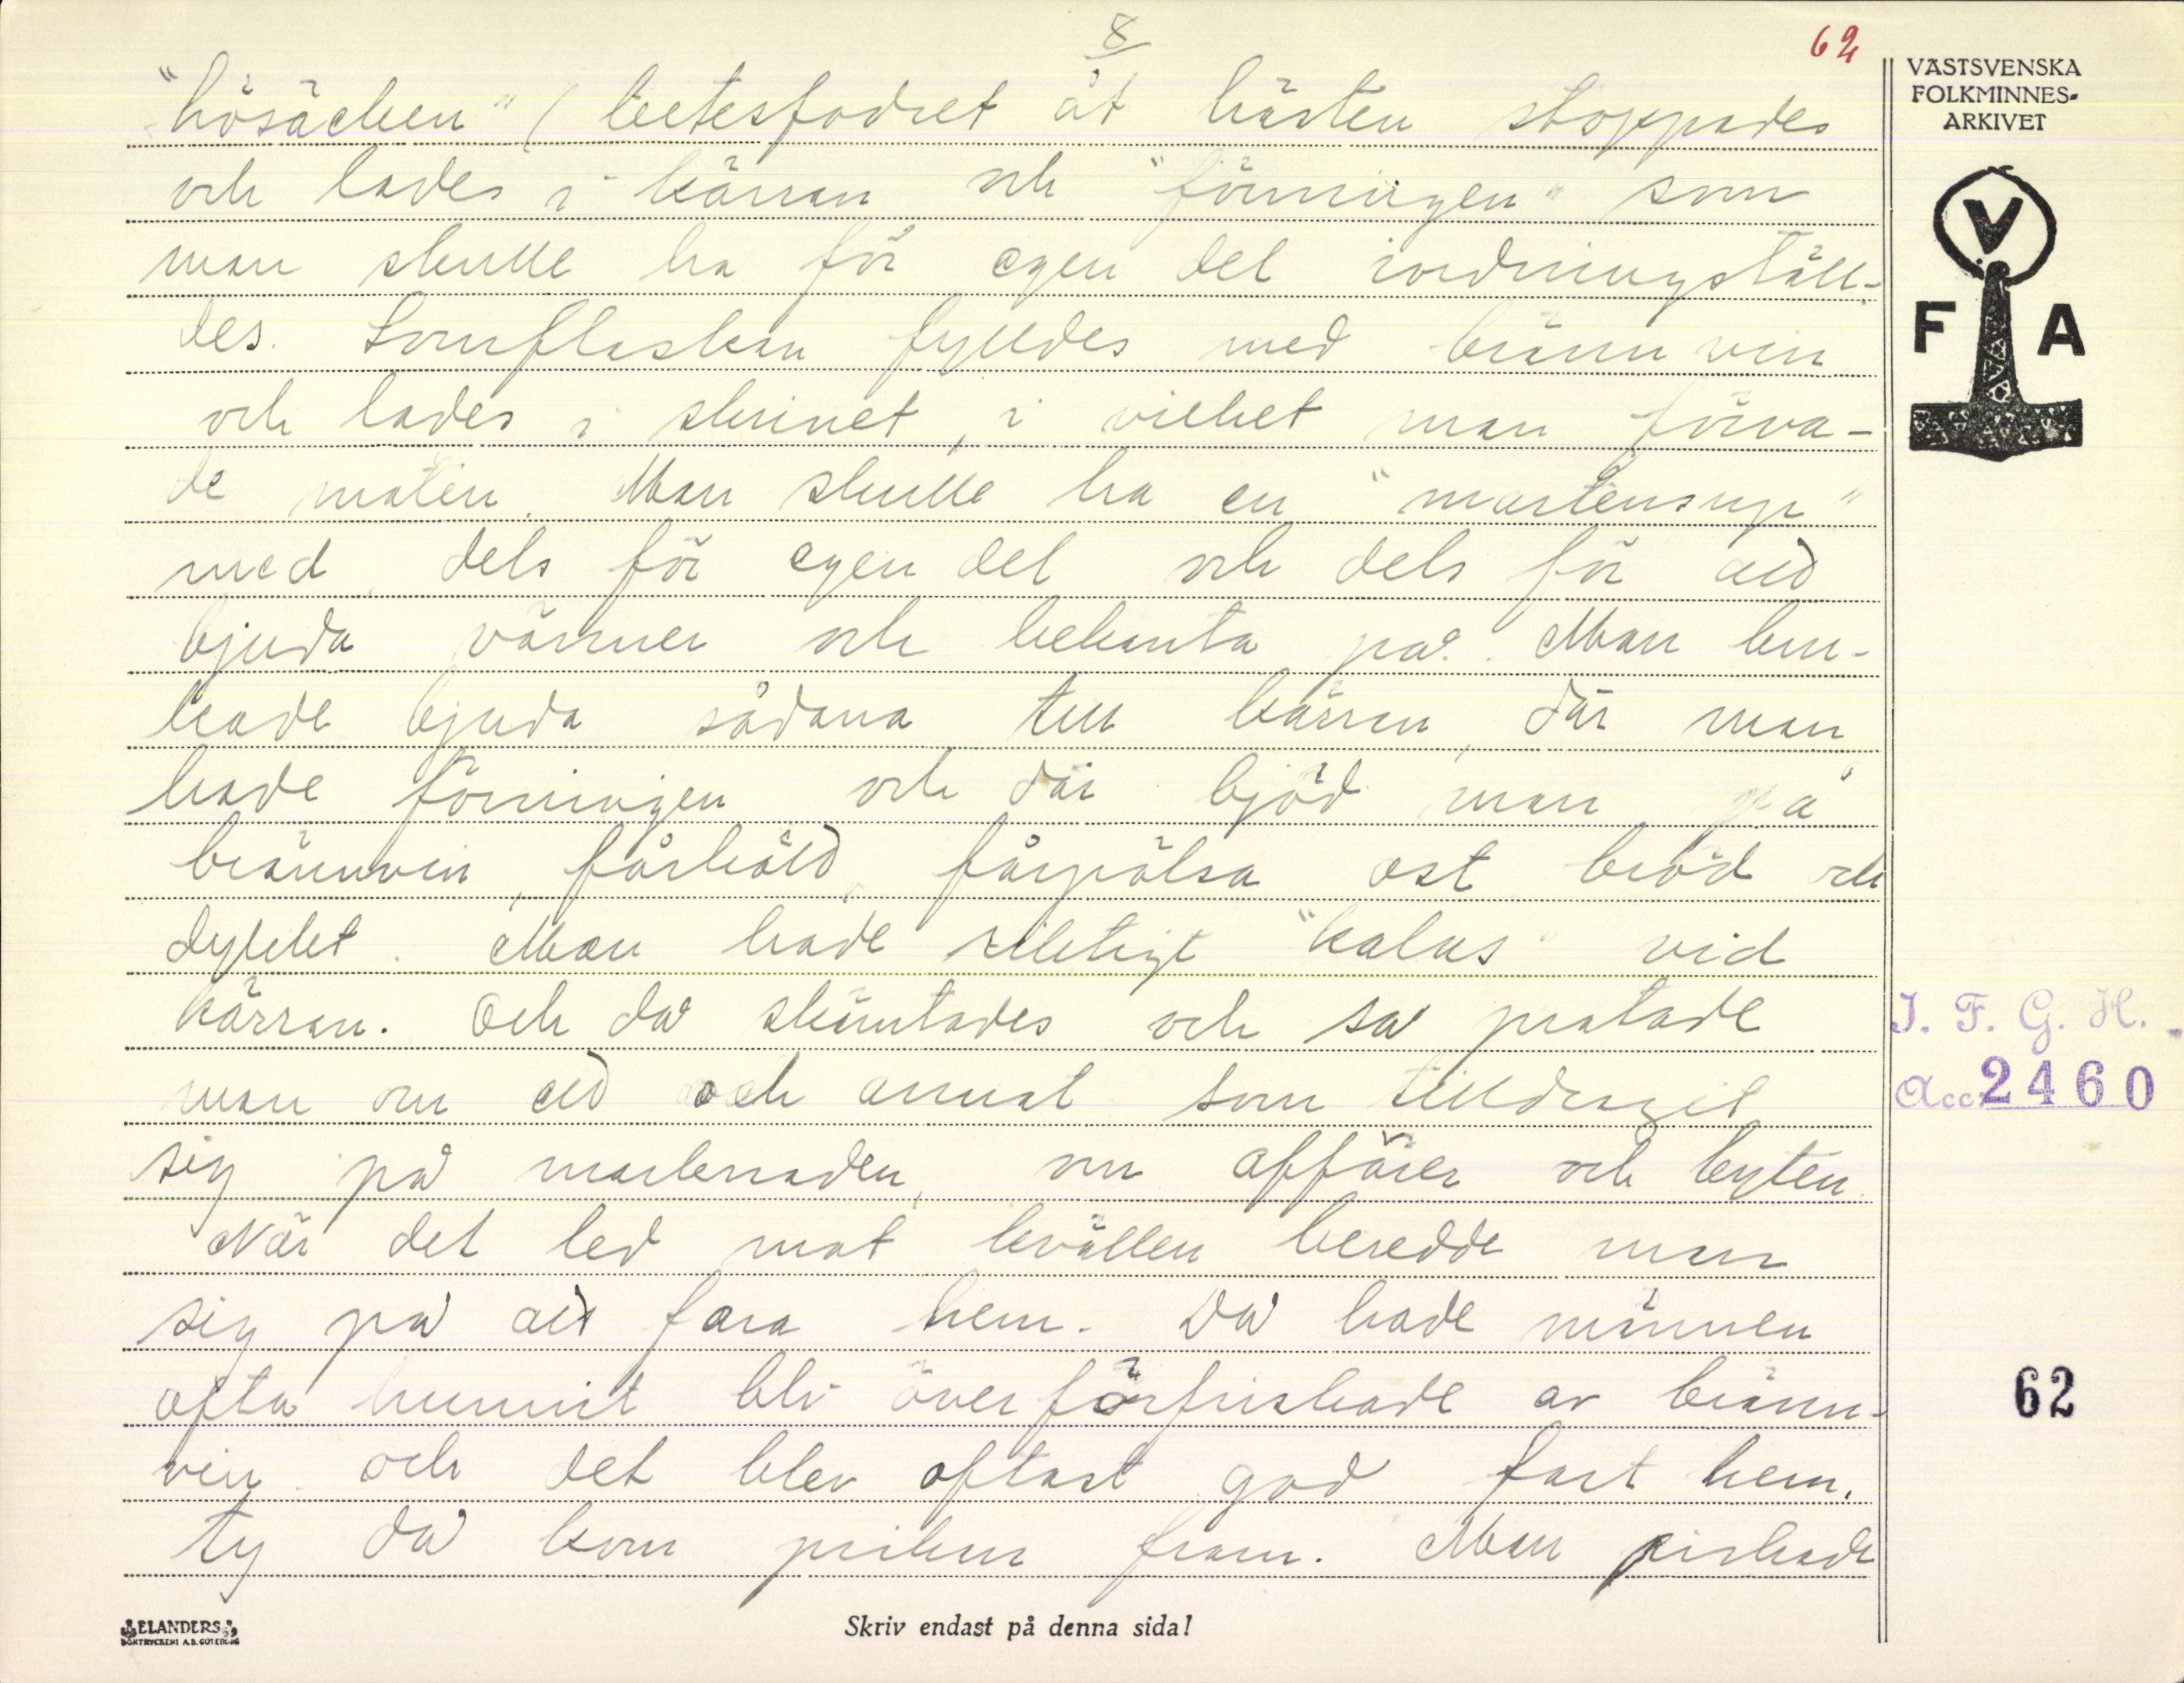 8
62
VÄSTSVENSKA
FOLKMINNES-
ARKIVET
V
F A
"hösäcken" ( betesfodret åt hästen stoppades
och lades i kärran och "förningen" som
man skulle ha för egen del iordningställ-
des. Lomflaskan fylldes med brännvin
och lades i skrinet, i vilket man förva-
de maten. Man skulle ha en "martensup"
med, dels för egen del och dels för att
bjuda vänner och bekanta på. Man bru-
kade bjuda sådana till kärran, där man
hade förningen och där bjöd man på
brännvin, fårkött, fårpölsa ost bröd och
dylikt. Man hade riktigt "kalas" vid
kärran. Och då skämtades och så pratade
man om ett och annat som tilldragit
sig på marknaden, om affärer och byten.
När det led mot kvällen beredde man
sig på att fara hem. Då hade männen
ofta hunnit bli överförfriskade av bränn-
vin och det blev oftast god fart hem,
ty då kom piskan fram. Man piskade
I. F. G. H.
Acc. 2460
62
ELANDERS
BOKTRYCKERI A.B. GÖTEBORG
Skriv endast på denna sida!